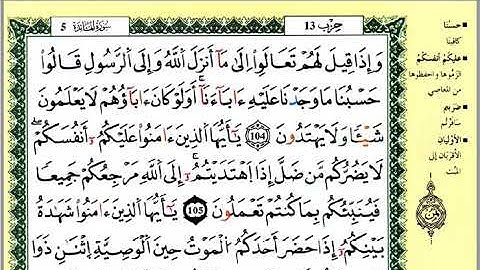 حِزْبُ 13
سُورَةُ المَائِدَةِ 5
وَإِذَا قِيلَ لَهُمْ تَعَالَوِاْ اِلَىٰ مَآ أَنزَلَ اَللَّهُ وَإِلَى اَلرَّسُولِ قَالُواْ
حَسْبُنَا مَا وَجَدْنَا عَلَيْهِ ءَابَآءَنَآ أَوَلَوْ كَانَ ءَابَآؤُهُمْ لَا يَعْلَمُونَ
شَيْـٔاً وَلَا يَهْتَدُونَ 104 يَٰٓأَيُّهَا اَلذِينَ ءَامَنُواْ عَلَيْكُمُۥٓ أَنفُسَكُمْ
لَا يَضُرُّكُم مَّن ضَلَّ إِذَا اَهْتَدَيْتُمُۥٓ إِلَى اَللَّهِ مَرْجِعُكُمْ جَمِيعاً
فَيُنَبِّئُكُم بِمَا كُنتُمْ تَعْمَلُونَ 105 يَٰٓأَيُّهَا اَلذِينَ ءَامَنُواْ شَهَٰدَةُ
بَيْنِكُمُۥٓ إِذَا حَضَرَ أَحَدَكُمُ اُلْمَوْتُ حِينَ اَلْوَصِيَّةِ اِثْنَٰنِ ذَوَا
حَسْبُنَا
كافينا
عَلَيْكُمُ أَنفُسَكُمْ
الزموها واحفظوها
من المعاصي
ضَرَبْتُمْ
سافرتم
الأَوْلَيَانِ
الأقربان إلى
الميت